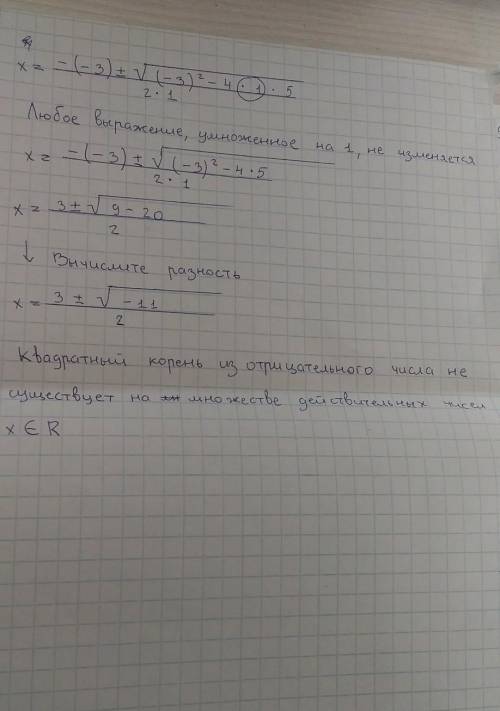 x = -(-3) ± √(-3)² - 4 · 1 · 5 / 2 · 1
Любое выражение, умноженное на 1, не изменяется
x = -(-3) ± √(-3)² - 4 · 5 / 2 · 1
x = 3 ± √9 - 20 / 2
↓ Вычислите разность
x = 3 ± √-11 / 2
Квадратный корень из отрицательного числа не
существует на множестве действительных чисел
x ∈ R